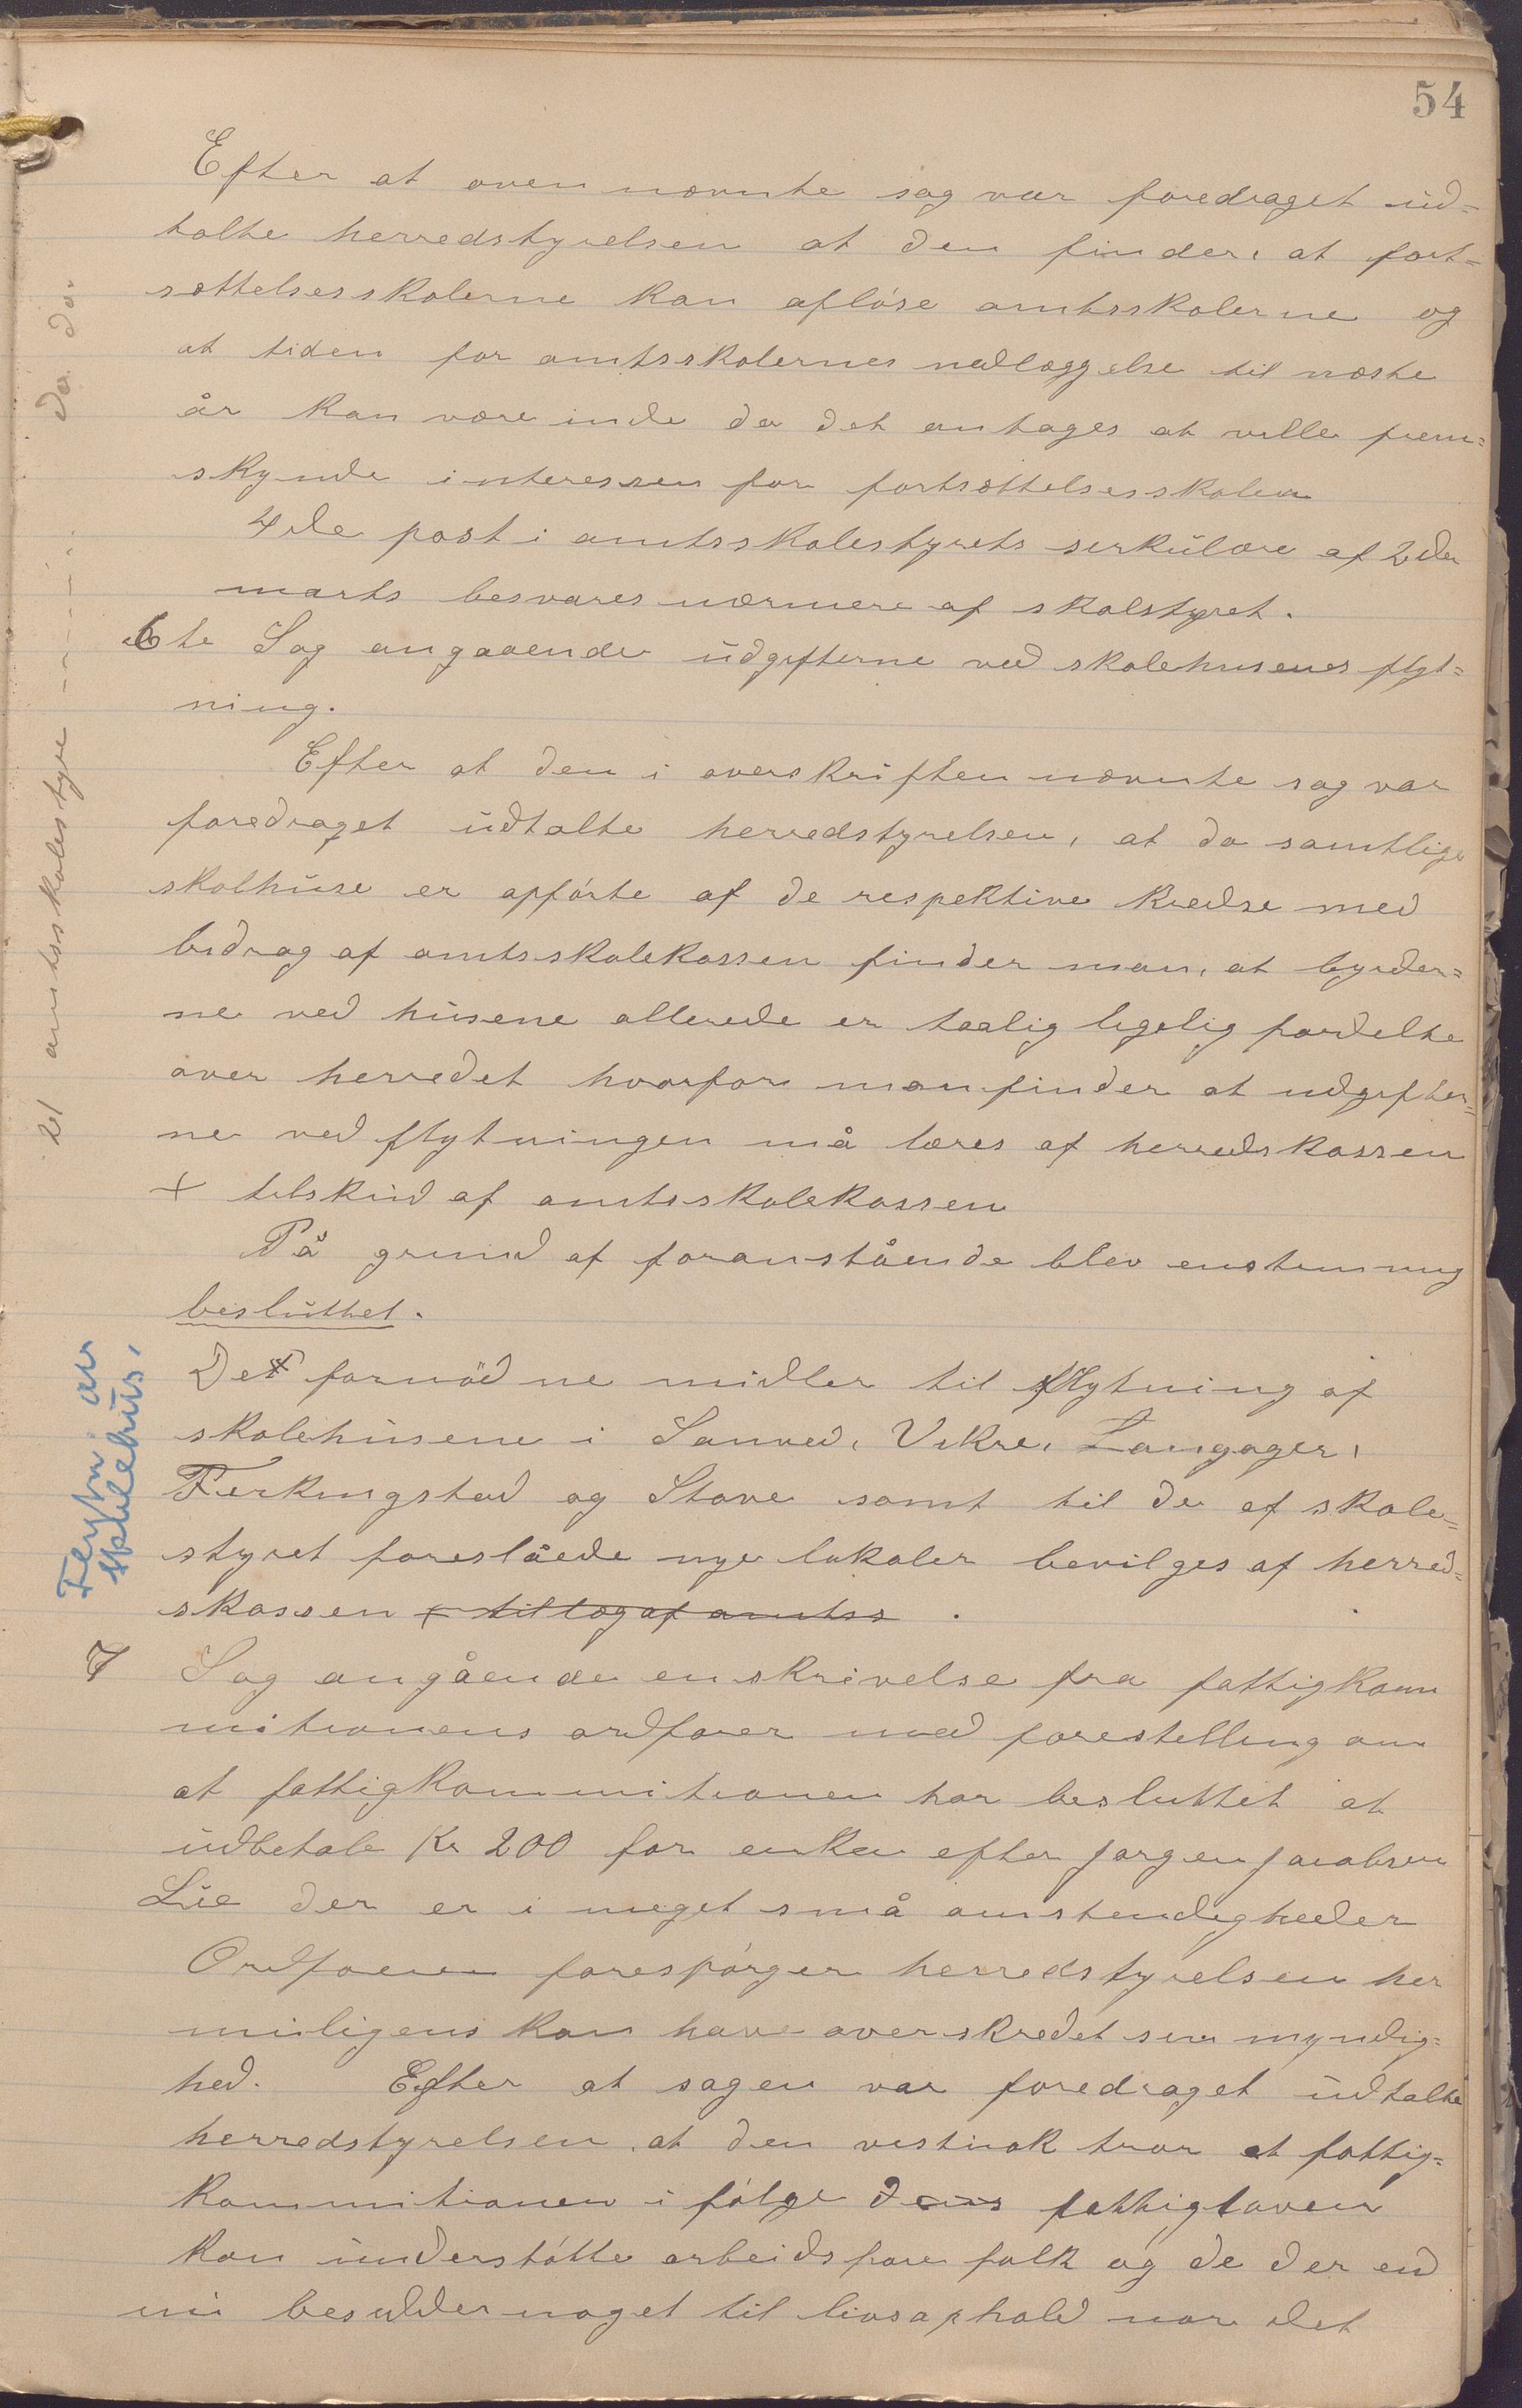 54
Efter at ovennævnte sag var foredraget ud=
talte herredstyrelsen at den finder, at fort=
sættelsesskolerne kan afløse amtsskolerne og
at tiden for amtsskolernes nedlæggelse til næste
år kan være inde da det antages at ville frem=
skynde interessen for fortsættelsesskolen
4de post i amtsskolestyrets serkulære af 2den
marts besvares nærmere af skolstyret.
6te Sag angaaende udgifterne ved skolehusenes flyt=
ning.
Efter at den i overskriften nævnte sag var
foredraget udtalte herredstyrelsen, at da samtlige
skolhuse er opførte af de respektive kredse med
bidrag af amtsskolekassen finder man, at byrder=
ne ved husene allerede er taalig ligelig fordelte
over herredet hvorfor man finder at udgifter=
ne ved flytningen må bæres af herredskassen
+ tilskud af amtsskolekassen
På grund af foranstående blev enstemmig
besluttet.
Det fornødne midler til flytning af
skolehusene i Sanved, Vikre, Langager,
Ferkingstad og Stave samt til de af skole=
styret foreslåede nye lokaler bevilges af herred=
skassen + tillæg af amtss .
7 Sag angående en skrivelse fra fattigkom
mitionens ordfører med forestilling om
at fattigkommitionen har besluttet at
udbetale Kr 200 for enken efter Jørgen Jacobsen
Lie der er i meget små omstendigheder
Ordføreren forespørger herredstyrelsen her
muligens kan have overskredet sin myndig=
hed. Efter at sagen var foredraget udtalte
herredstyrelsen, at den vestnok tror at fattig=
kommitionen i følge fattigloven
kan understøtte arbeidsføre folk og de der end
nu besidder noget til livsophold nar det
til amtsskolestyre da der
Flytn. av
skolehus.